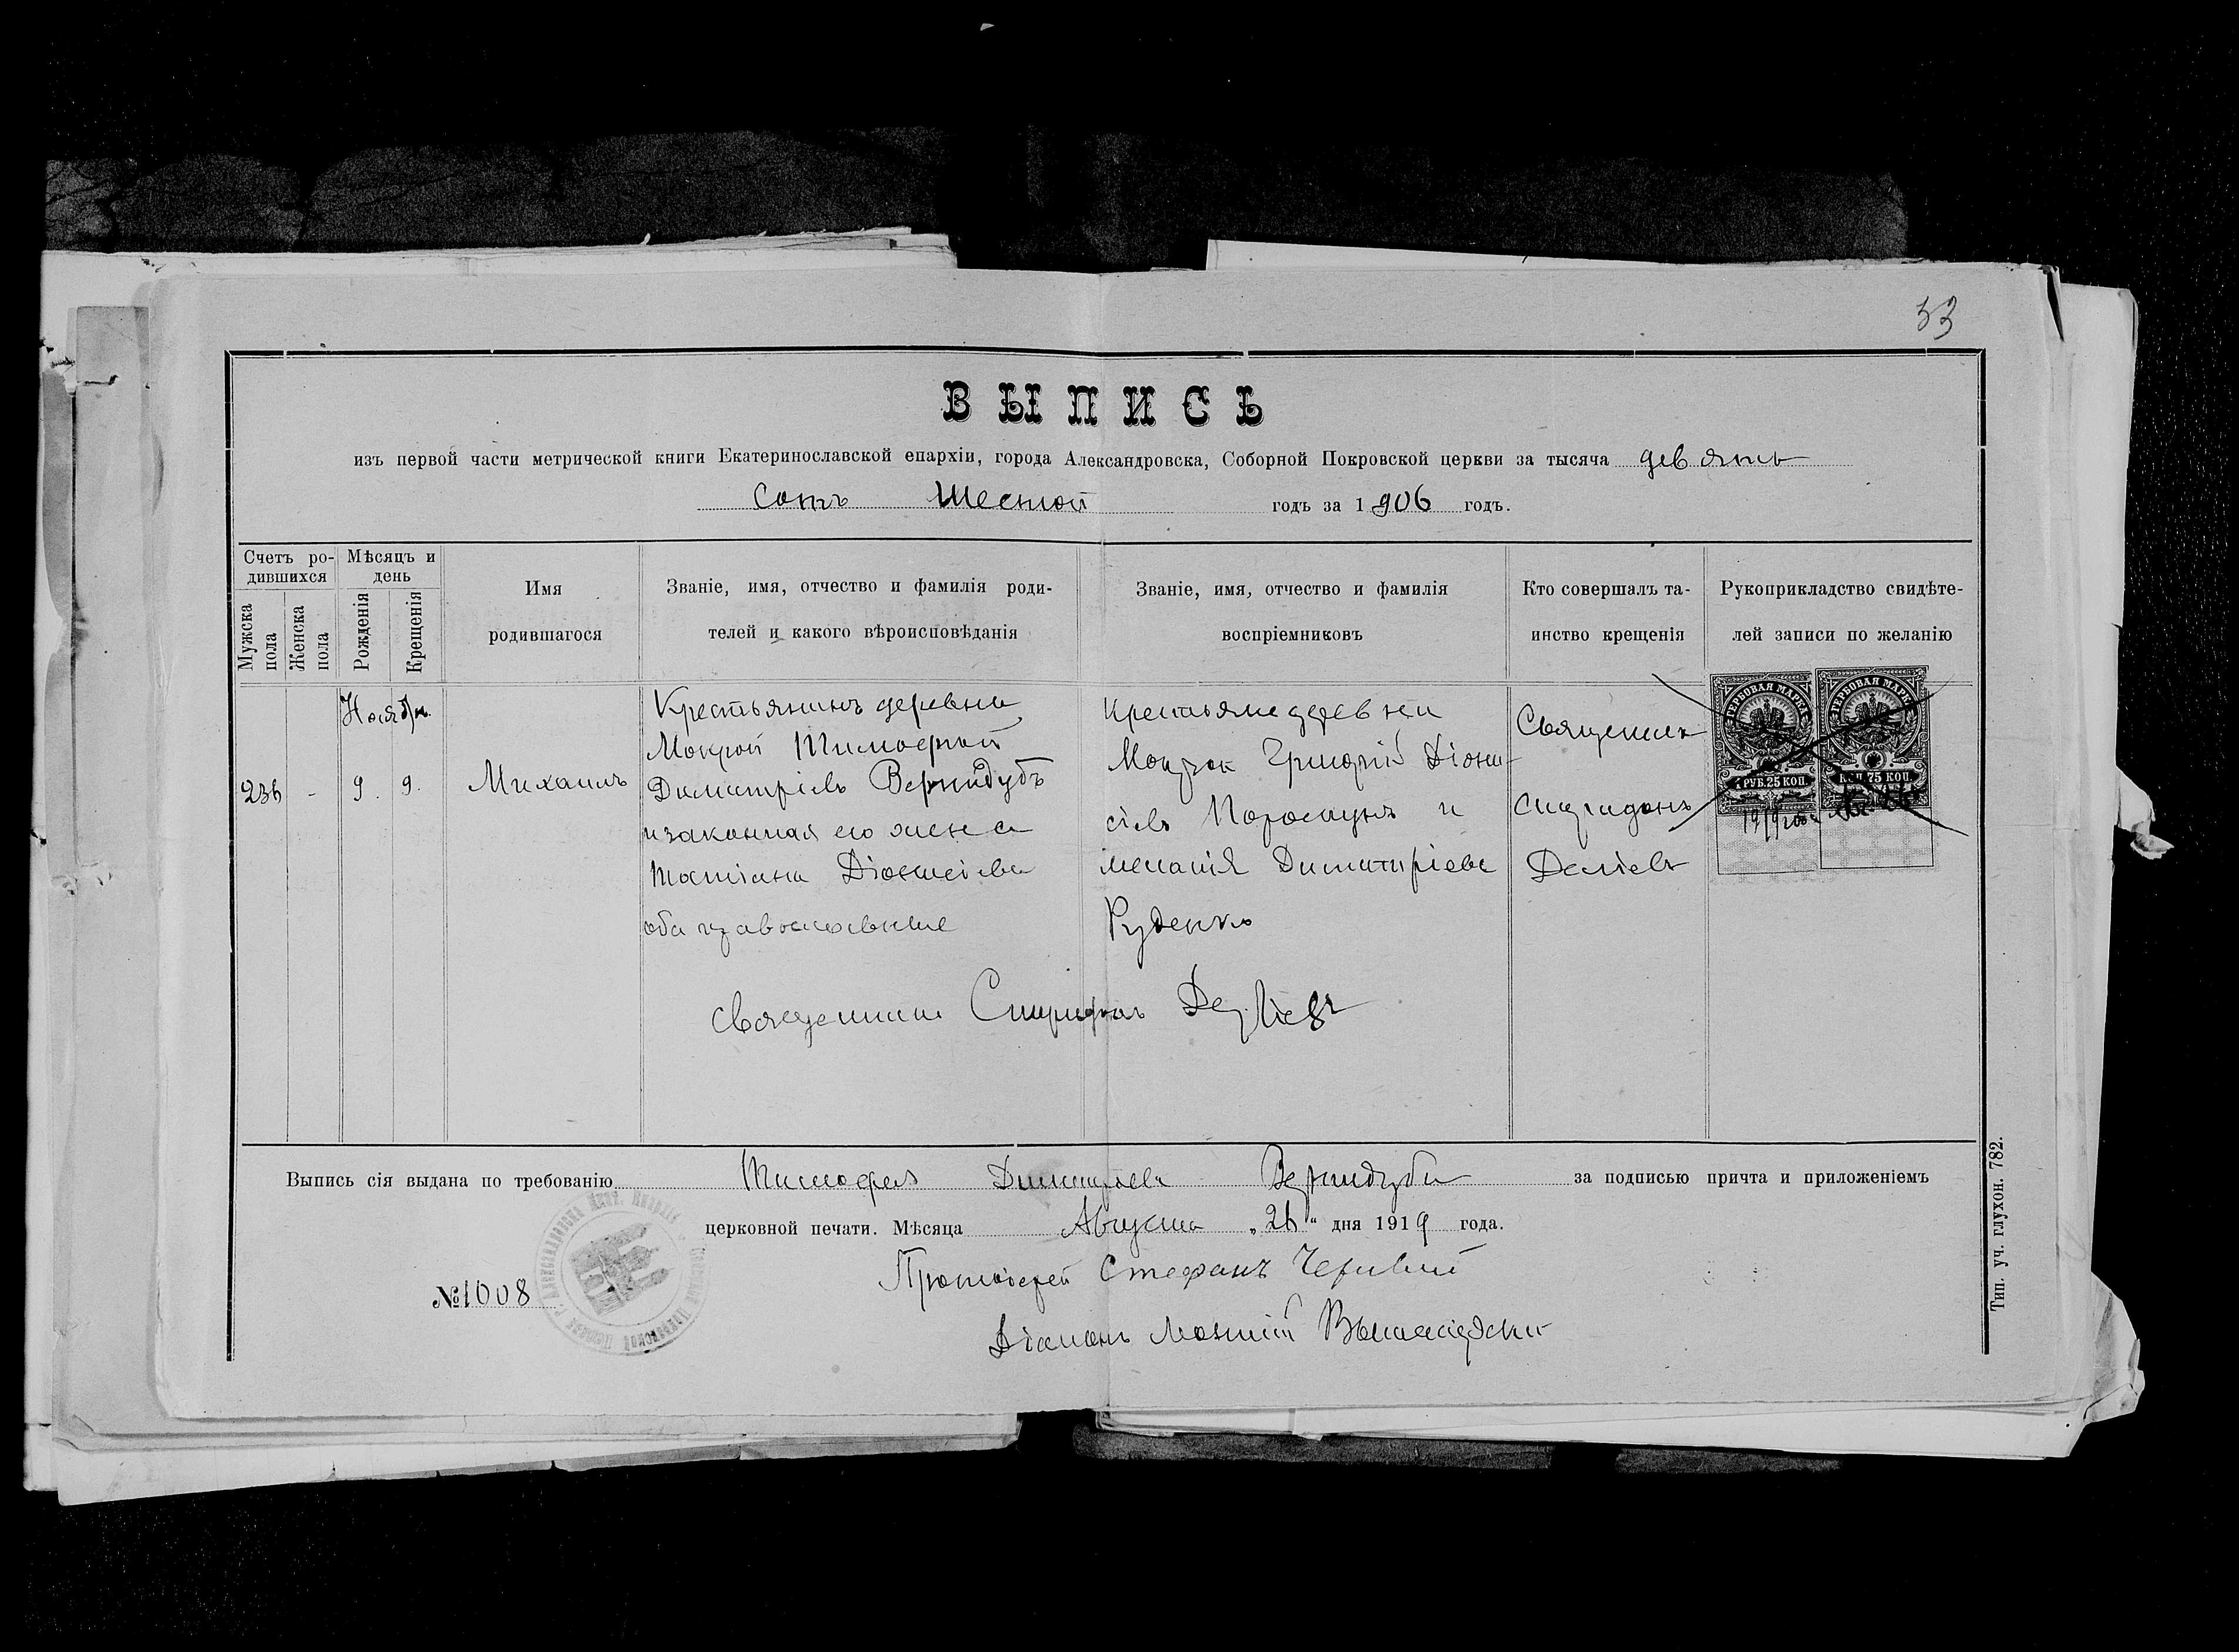 33
ВЫПИСЬ
изъ первой части метрической книги Екатеринославской епархіи, города Александровска, Соборной Покровской церкви за тысяча девять
сотъ шестой годъ за 1906 годъ.
Счетъ ро-
дившихся
Мужска
пола
Женска
пола
Мѣсяцъ и
день
Рожденія
Крещенія
Имя
родившагося
Званіе, имя, отчество и фамилія роди-
телей и какого вѣроисповѣданія
Званіе, имя, отчество и фамилія
воспріемниковъ
Кто совершалъ та-
инство крещенія
Рукоприкладство свидѣте-
лей записи по желанію
236
-
Ноября
9.
9.
Михаилъ
Крестьянинъ деревни
Мокрой Тимофей
Димитріевъ Вернидубъ
и законная его жена
Татіана Діонисіева
оба православные
Крестьяне деревни
Мокрой Григорій Діони-
сіевъ и
Меланія Димитріева
Руденко
Священникъ
Спиридонъ
ГЕРБОВАЯ МАРКА
1 РУБ. 25 КОП.
ГЕРБОВАЯ МАРКА
КОП. 75 КОП.
1919 года
Священникъ Спиридонъ
Выпись сія выдана по требованію Тимофея Димитріева Вернидуба за подписью причта и приложеніемъ
церковной печати. Мѣсяца Августа „26" дня 1919 года.
№ 1008
Протоіерей Стефанъ
Діаконъ
Тип. уч. глухон. 782.